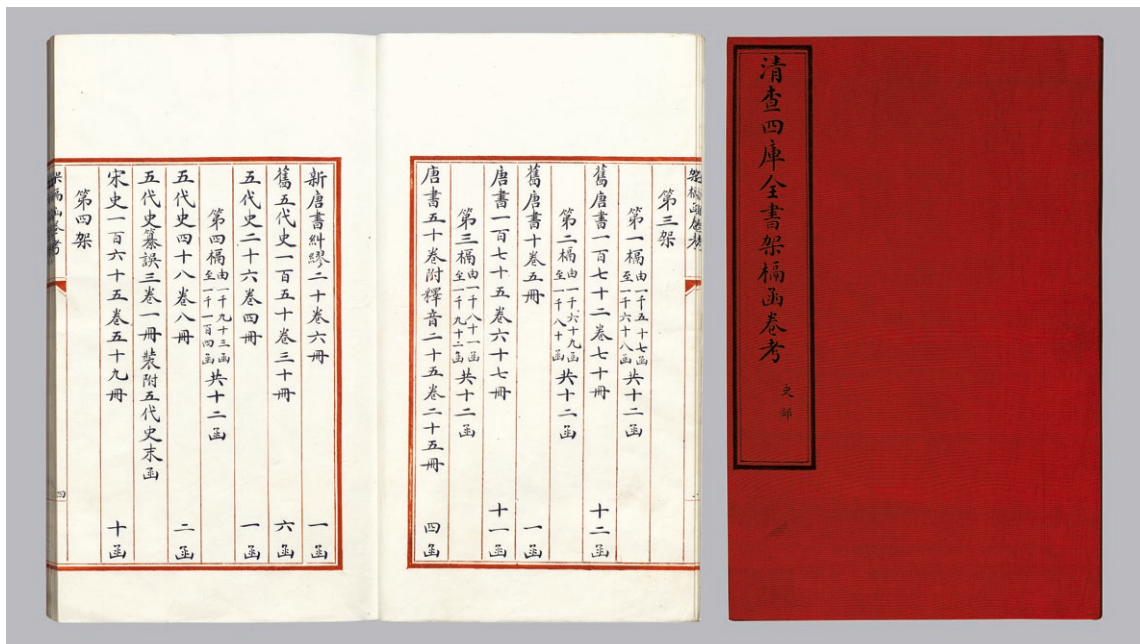 清查四庫全書架槅函卷考
史部
架槅函卷考
第三架
第一槅由一千五十七函至一千六十八函共十二函
舊唐書一百七十二卷七十冊 十二函
第二槅由一千六十九函至一千八十函共十二函
舊唐書十卷五冊 一函
唐書一百七十五卷六十七冊 十一函
第三槅由一千八十一函至一千九十二函共十二函
唐書五十卷附釋音二十五卷二十五冊 四函
新唐書糾繆二十卷六冊 一函
舊五代史一百五十卷三十冊 六函
五代史二十六卷四冊 一函
第四槅由一千九十三函至一千一百四函共十二函
五代史四十八卷八冊 二函
五代史纂誤三卷一冊裝附五代史末函
宋史一百六十五卷五十九冊 十函
第四架
架槅函卷考
四